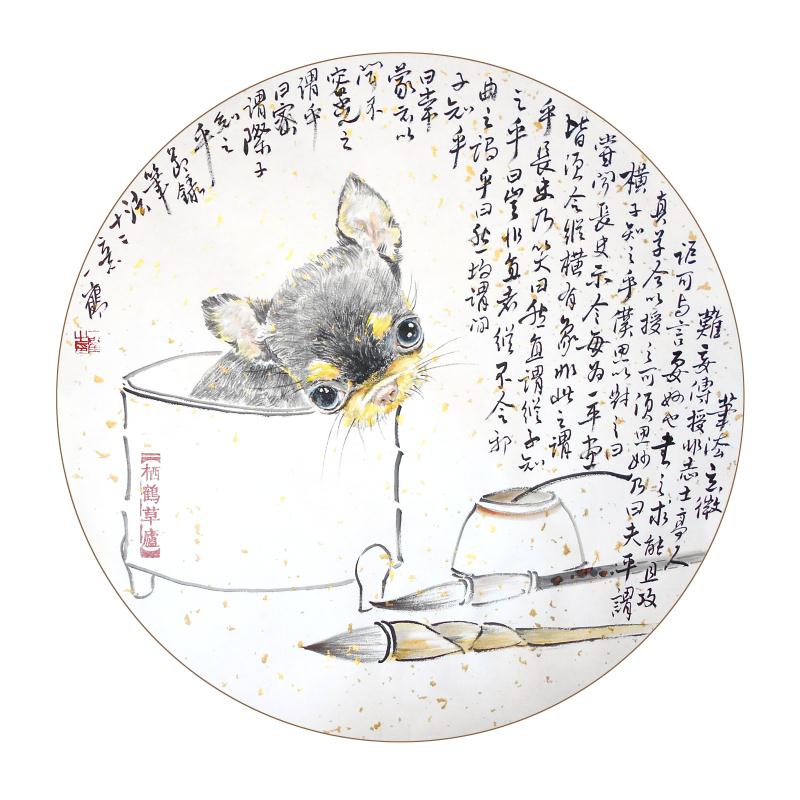 筆法玄微
難妄傳授非志士高人
詎可与言要妙也書之求能且攻
真草今以授之可須思妙乃曰夫平謂
橫子知之乎僕思以對之曰
嘗聞長史示令每為一平畫
皆須令縱橫有象非此之謂
乎長史乃笑曰然直謂縱子知
之乎曰豈非直者縱不令邪
曲之謂乎曰然均謂間
子知乎
曰常
蒙示以
間不
容光之
謂乎
曰密
謂際子
知之
乎
節錄
筆
法
十二
意
一鶴
栖鶴草廬